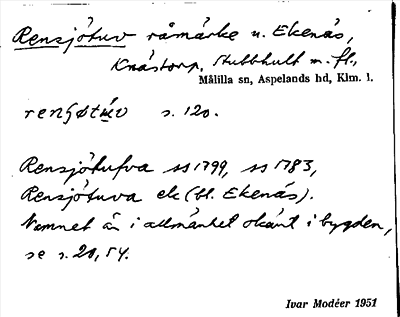 Rensjötuv råmärke u. Ekenäs,
Knästorp, Stubbhult m. fl.,
Målilla sn, Aspelands hd, Klm. l.
renʃøtúv s. 120.
Rensjötufva ss 1799, ss 1783,
Rensjötuva ek (bl. Ekenäs).
Namnet är i allmänhet okänt i bygden,
se s. 20, 54.
Ivar Modéer 1951